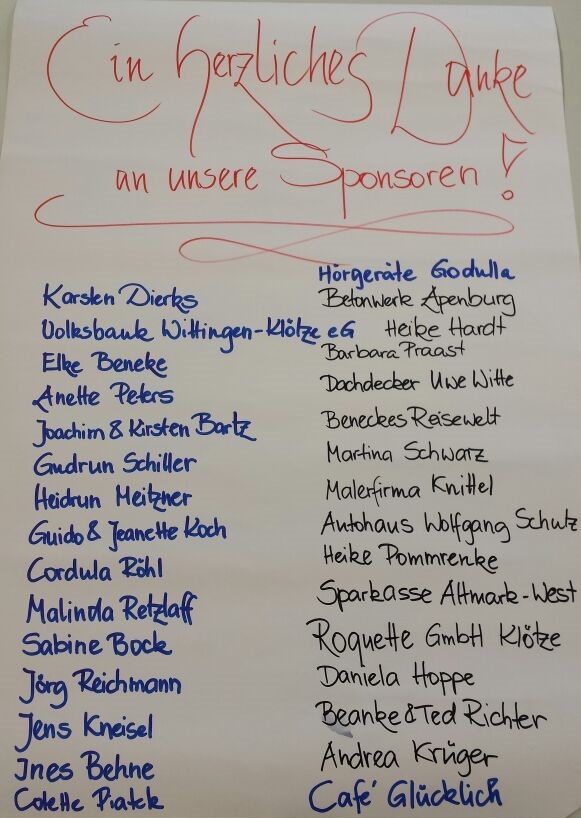 Ein herzliches Danke
an unsere Sponsoren!
Karsten Dierks
Volksbank Wittingen-Klötze eG
Elke Beneke
Anette Peters
Joachim & Kirsten Bartz
Gudrun Schiller
Heidrun Meitzner
Guido & Jeanette Koch
Cordula Röhl
Malinda Retzlaff
Sabine Bock
Jörg Reichmann
Jens Kneisel
Ines Behne
Colette Piatek
Hörgeräte Godulla
Betonwerk Apenburg
Heike Hardt
Barbara Praast
Dachdecker Uwe Witte
Beneckes Reisewelt
Martina Schwarz
Malerfirma Knittel
Autohaus Wolfgang Schulz
Heike Pommrenke
Sparkasse Altmark-West
Roquette GmbH Klötze
Daniela Hoppe
Beanke & Ted Richter
Andrea Krüger
Café Glücklich